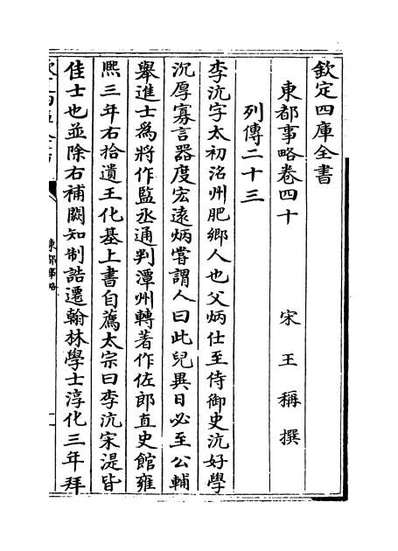 欽定四庫全書
東都事略卷四十
宋 王 稱 撰
列傳二十三
李沆字太初洺州肥鄉人也父炳仕至侍御史沆好學
沉厚寡言器度宏遠炳嘗謂人曰此兒異日必至公輔
舉進士為將作監丞通判潭州轉著作佐郎直史館雍
熙三年右拾遺王化基上書自薦太宗曰李沆宋湜皆
佳士也並除右補闕知制誥遷翰林學士淳化三年拜